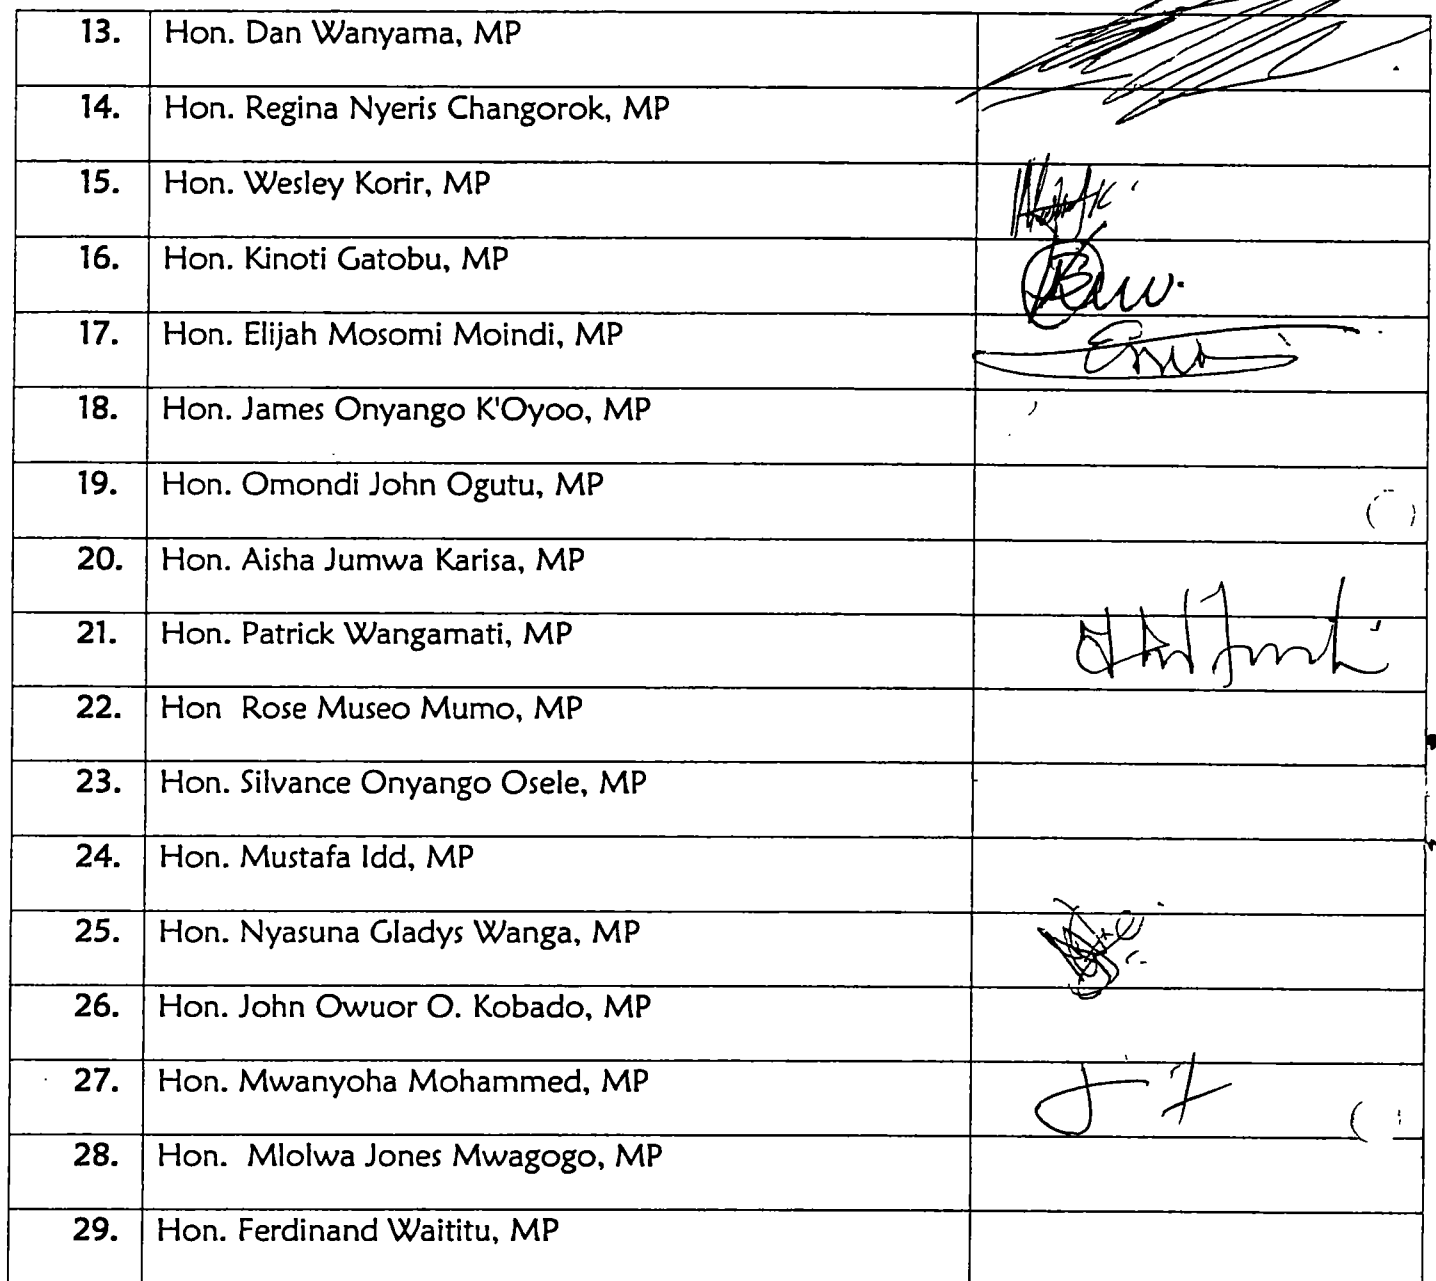 13. Hon. Dan Wanyama, MP
14. Hon. Regina Nyeris Changorok, MP
15. Hon. Wesley Korir, MP
16. Hon. Kinoti Gatobu, MP
17. Hon. Elijah Mosomi Moindi, MP
18. Hon. James Onyango K'Oyoo, MP
19. Hon. Omondi John Ogutu, MP
20. Hon. Aisha Jumwa Karisa, MP
21. Hon. Patrick Wangamati, MP
22. Hon Rose Museo Mumo, MP
23. Hon. Silvance Onyango Osele, MP
24. Hon. Mustafa Idd, MP
25. Hon. Nyasuna Gladys Wanga, MP
26. Hon. John Owuor O. Kobado, MP
27. Hon. Mwanyoha Mohammed, MP
28. Hon. Mlolwa Jones Mwagogo, MP
29. Hon. Ferdinand Waititu, MP